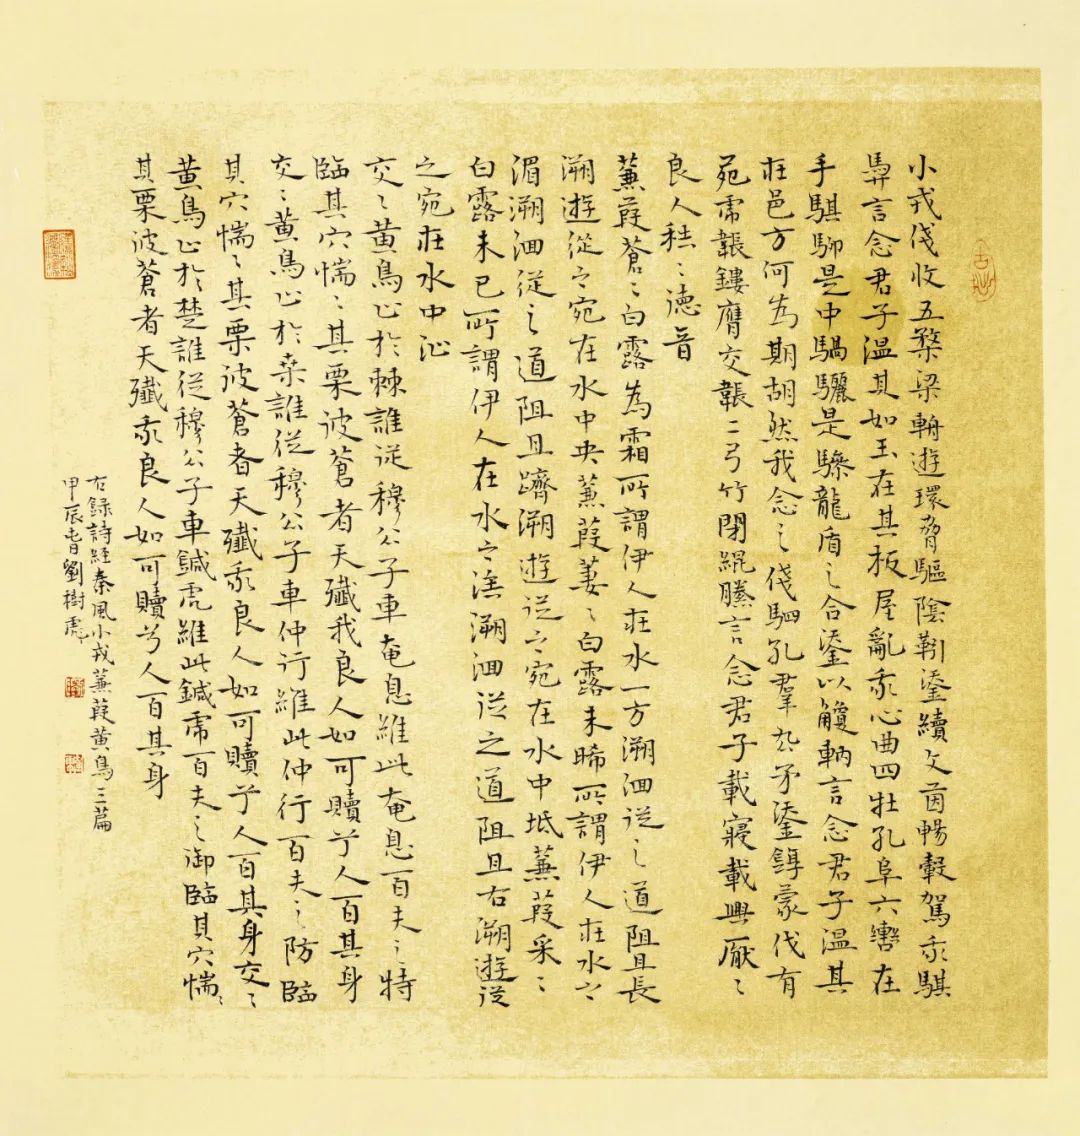 小戎俴收五楘梁輈遊環脅驅陰靷鋈續文茵暢轂駕我騏
馵言念君子溫其如玉在其板屋亂我心曲四牡孔阜六轡在
手騏駵是中騧驪是驂龍盾之合鋈以觼軜言念君子溫其
在邑方何為期胡然我念之俴駟孔羣厹矛鋈錞蒙伐有
苑虎韔鏤膺交韔二弓竹閉緄縢言念君子載寢載興厭〻
良人秩〻德音
蒹葭蒼〻白露為霜所謂伊人在水一方溯洄從之道阻且長
溯遊從之宛在水中央蒹葭萋〻白露未晞所謂伊人在水之
湄溯洄從之道阻且躋溯遊從之宛在水中坻蒹葭采〻
白露未已所謂伊人在水之涘溯洄從之道阻且右溯遊從
之宛在水中沚
交〻黃鳥止於棘誰從穆公子車奄息維此奄息百夫之特
臨其穴惴〻其栗彼蒼者天殲我良人如可贖兮人百其身
交〻黃鳥止於桑誰從穆公子車仲行維此仲行百夫之防臨
其穴惴〻其栗彼蒼者天殲我良人如可贖兮人百其身交〻
黃鳥止於楚誰從穆公子車鍼虎維此鍼虎百夫之御臨其穴惴〻
其栗彼蒼者天殲我良人如可贖兮人百其身
右錄詩經秦風小戎蒹葭黃鳥三篇
甲辰春劉樹虎